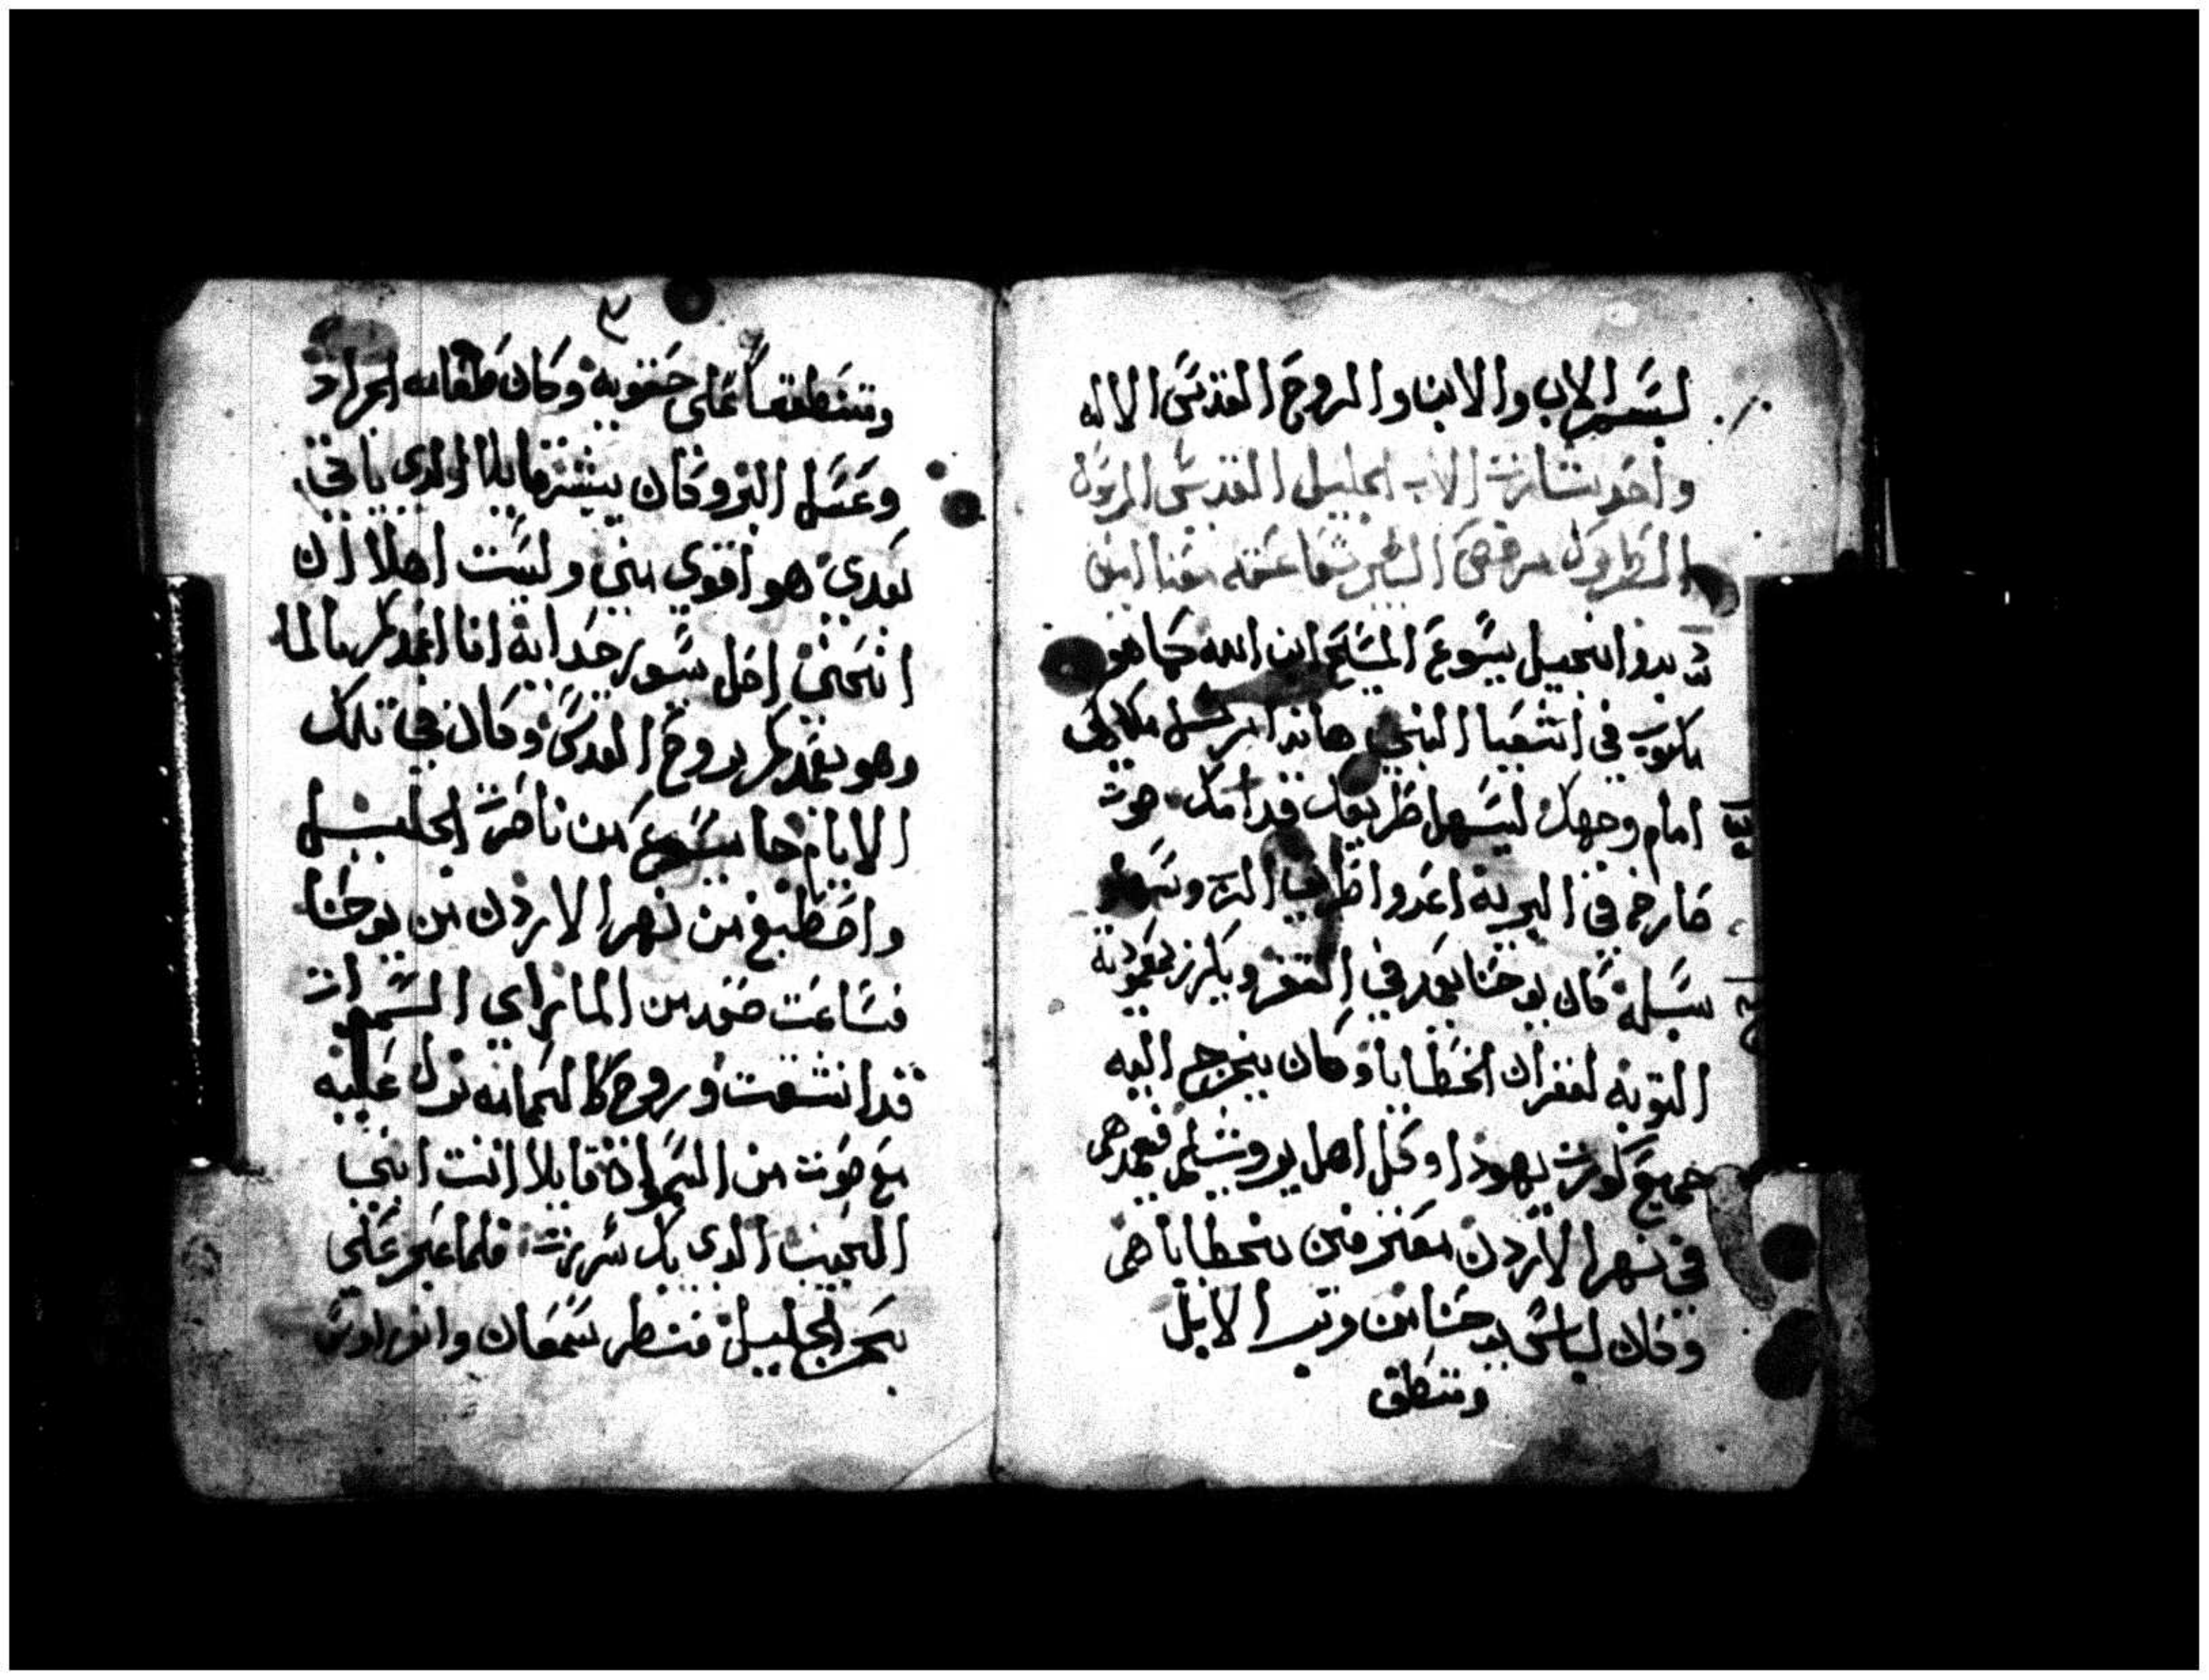 بسم الاب والابن والروح القدس الاله
واحد بشارت الاب الجليل القديس
مرقص شفاعته معنا امين
بدو انجيل يسوع المسيح ابن الله كما هو
مكتوب في اشعيا النبي هاندا مرسل ملاكي
امام وجهك ليسهل طريقك قدامك صوت
صارخ في البرية اعدوا طريق الرب وسهلوا
سبله فكان يوحنا يعمد في القفر ويكرز بمعمودية
التوبه لغفران الخطايا وكان يخرج اليه
جميع كورت يهودا وكل اهل يروشليم فيعمدهم
في نهر الاردن معترفين بخطاياهم
وكان لباس يوحنا من وبر الابل
ومنطق
٣
ومنطقا على حقويه وكان طعامه الجراد
وعسل البر وكان يبشر قايلا الدي ياتي
بعدي هو اقوي مني وليت اهلا ان
انحني احل سيور حدايه انا اعمدكم بالما
وهو يعمدكم بروح القدس وكان في تلك
الايام جا يسوع من ناصرت الجليل
واصطبغ من نهر الاردن من يوحنا
فساعت صعد من الما راي السموات
قد انشقت وروح كالحمامه نزل عليه
مع صوت من السموات قايلا انت ابني
الحبيب الدي بك سررت فلما عبر على
بحر الجليل فنظر سمعان واندراوس